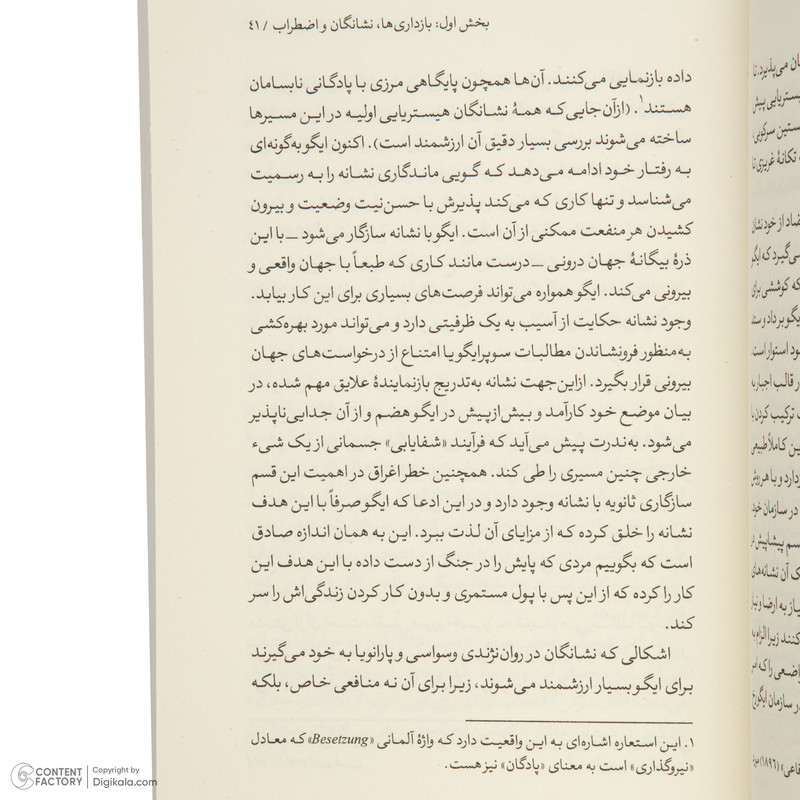 بخش اول: بازداری‌ها، نشانگان و اضطراب / ۴۱
داده بازنمایی می‌کنند. آن‌ها همچون پایگاهی مرزی با پادگانی نابسامان
هستند۱. (ازآن‌جایی‌که همهٔ نشانگان هیستریایی اولیه در این مسیرها
ساخته می‌شوند بررسی بسیار دقیق آن ارزشمند است). اکنون ایگو به‌گونه‌ای
به رفتار خود ادامه می‌دهد که گویی ماندگاری نشانه را به رسمیت
می‌شناسد و تنها کاری که می‌کند پذیرش با حسن‌نیت وضعیت و بیرون
کشیدن هر منفعت ممکنی از آن است. ایگو با نشانه سازگار می‌شود ـ با این
ذرهٔ بیگانهٔ جهان درونی ـ درست مانند کاری که طبعاً با جهان واقعی و
بیرونی می‌کند. ایگو همواره می‌تواند فرصت‌های بسیاری برای این کار بیابد.
وجود نشانه حکایت از آسیب به یک ظرفیتی دارد و می‌تواند مورد بهره‌کشی
به‌منظور فرونشاندن مطالبات سوپرایگو یا امتناع از درخواست‌های جهان
بیرونی قرار بگیرد. ازاین‌جهت نشانه به‌تدریج بازنمایندهٔ علایق مهم شده، در
بیان موضع خود کارآمد و بیش‌ازپیش در ایگو هضم و از آن جدایی‌ناپذیر
می‌شود. به‌ندرت پیش می‌آید که فرآیند «شفایابی» جسمانی از یک شیء
خارجی چنین مسیری را طی کند. همچنین خطر اغراق در اهمیت این قسم
سازگاری ثانویه با نشانه وجود دارد و در این ادعا که ایگو صرفاً با این هدف
نشانه را خلق کرده که از مزایای آن لذت ببرد. این به همان اندازه صادق
است که بگوییم مردی که پایش را در جنگ از دست داده با این هدف این
کار را کرده که از این پس با پول مستمری و بدون کار کردن زندگی‌اش را سر
کند.
اشکالی که نشانگان در روان‌نژندی وسواسی و پارانویا به خود می‌گیرند
برای ایگو بسیار ارزشمند می‌شوند، زیرا برای آن نه منافعی خاص، بلکه
۱. این استعاره اشاره‌ای به این واقعیت دارد که واژهٔ آلمانی «Besetzung» که معادل
«نیروگذاری» است به معنای «پادگان» نیز هست.
CONTENT FACTORY
Copyright by Digikala.com